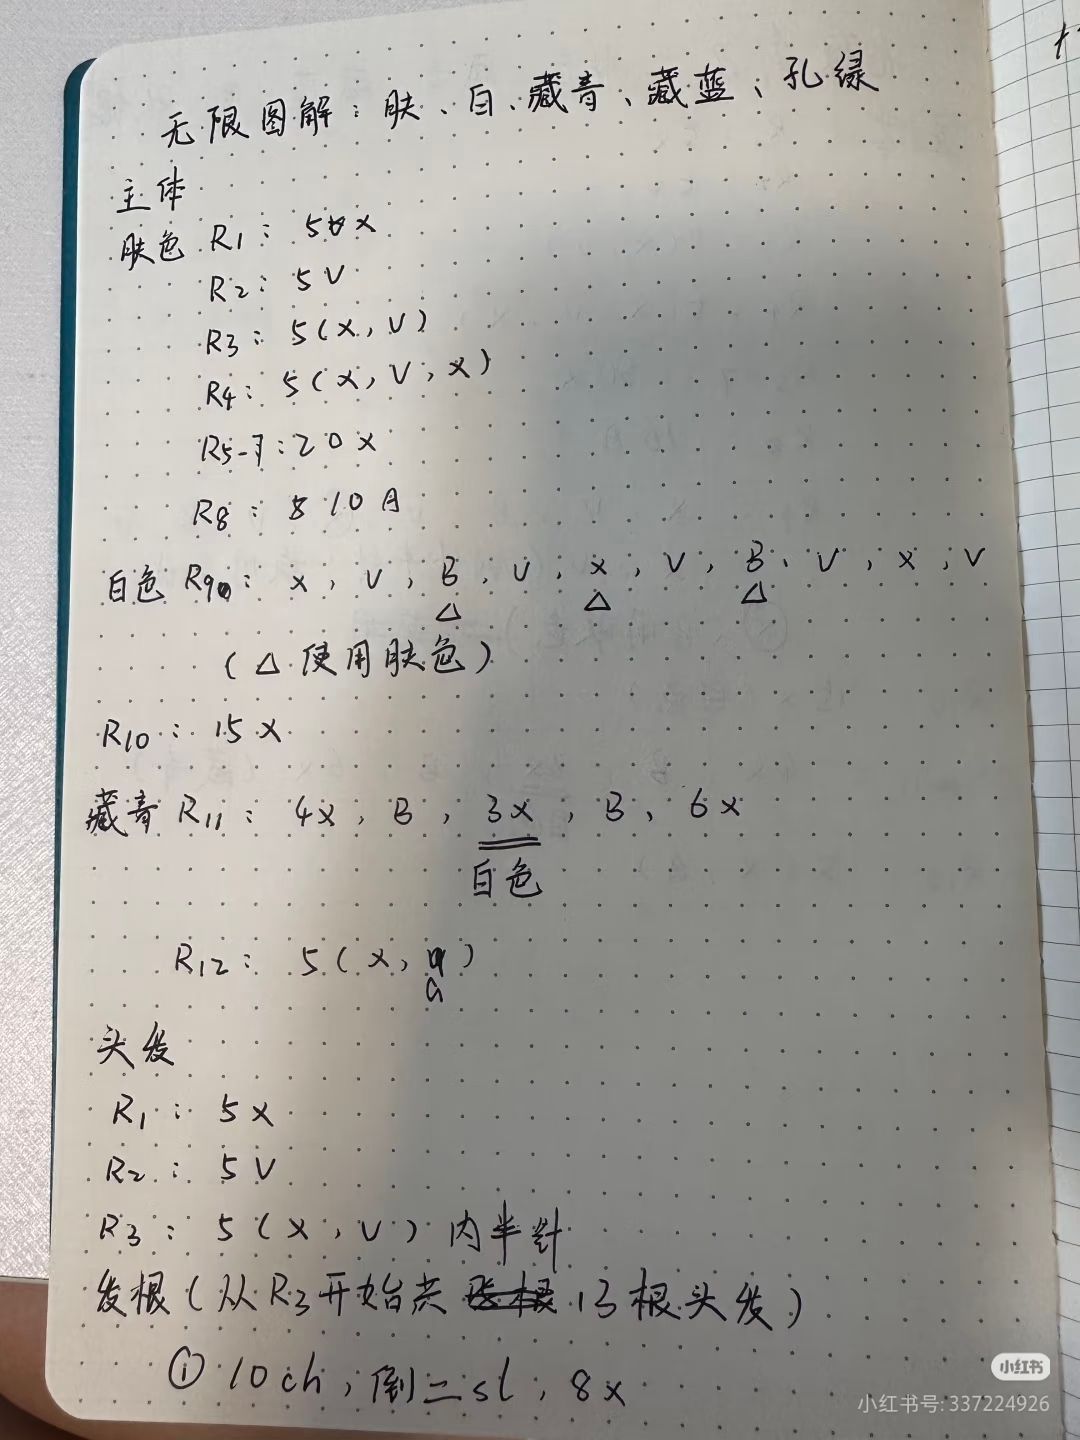 无限图解：肤、白、藏青、藏蓝、孔绿
主体
肤色 R1：5x
R2：5V
R3：5(x,V)
R4：5(x,V,x)
R5-7：20x
R8：10A
白色 R9：x,V,B,V,x,V,B,V,x,V
△ △ △
(△使用肤色)
R10：15x
藏青 R11：4x,B,3x,B,6x
白色
R12：5(x,A)
头发
R1：5x
R2：5V
R3：5(x,V)内半针
发根(从R3开始共13根头发)
①10ch,倒二sl,8x
小红书
小红书号:337224926